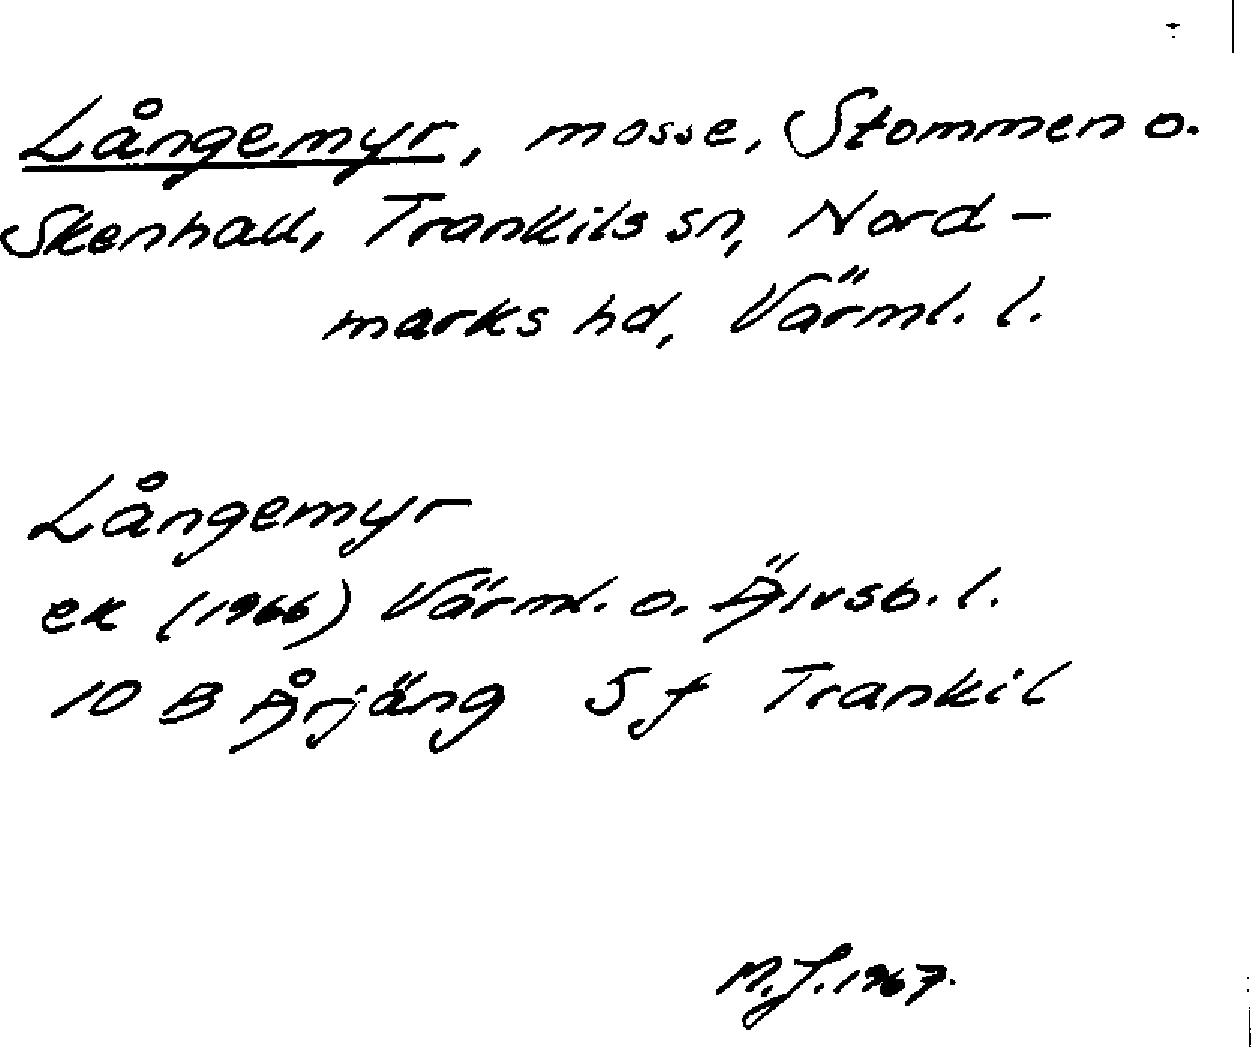 Långemyr, mosse, Stommen o.
Skenhall, Trankils sn, Nord-
marks hd, Värml. l.
Långemyr
ek (1966) Värml. o. Älvsb. l.
10 B Årjäng 5 f Trankil
M.J. 1967.